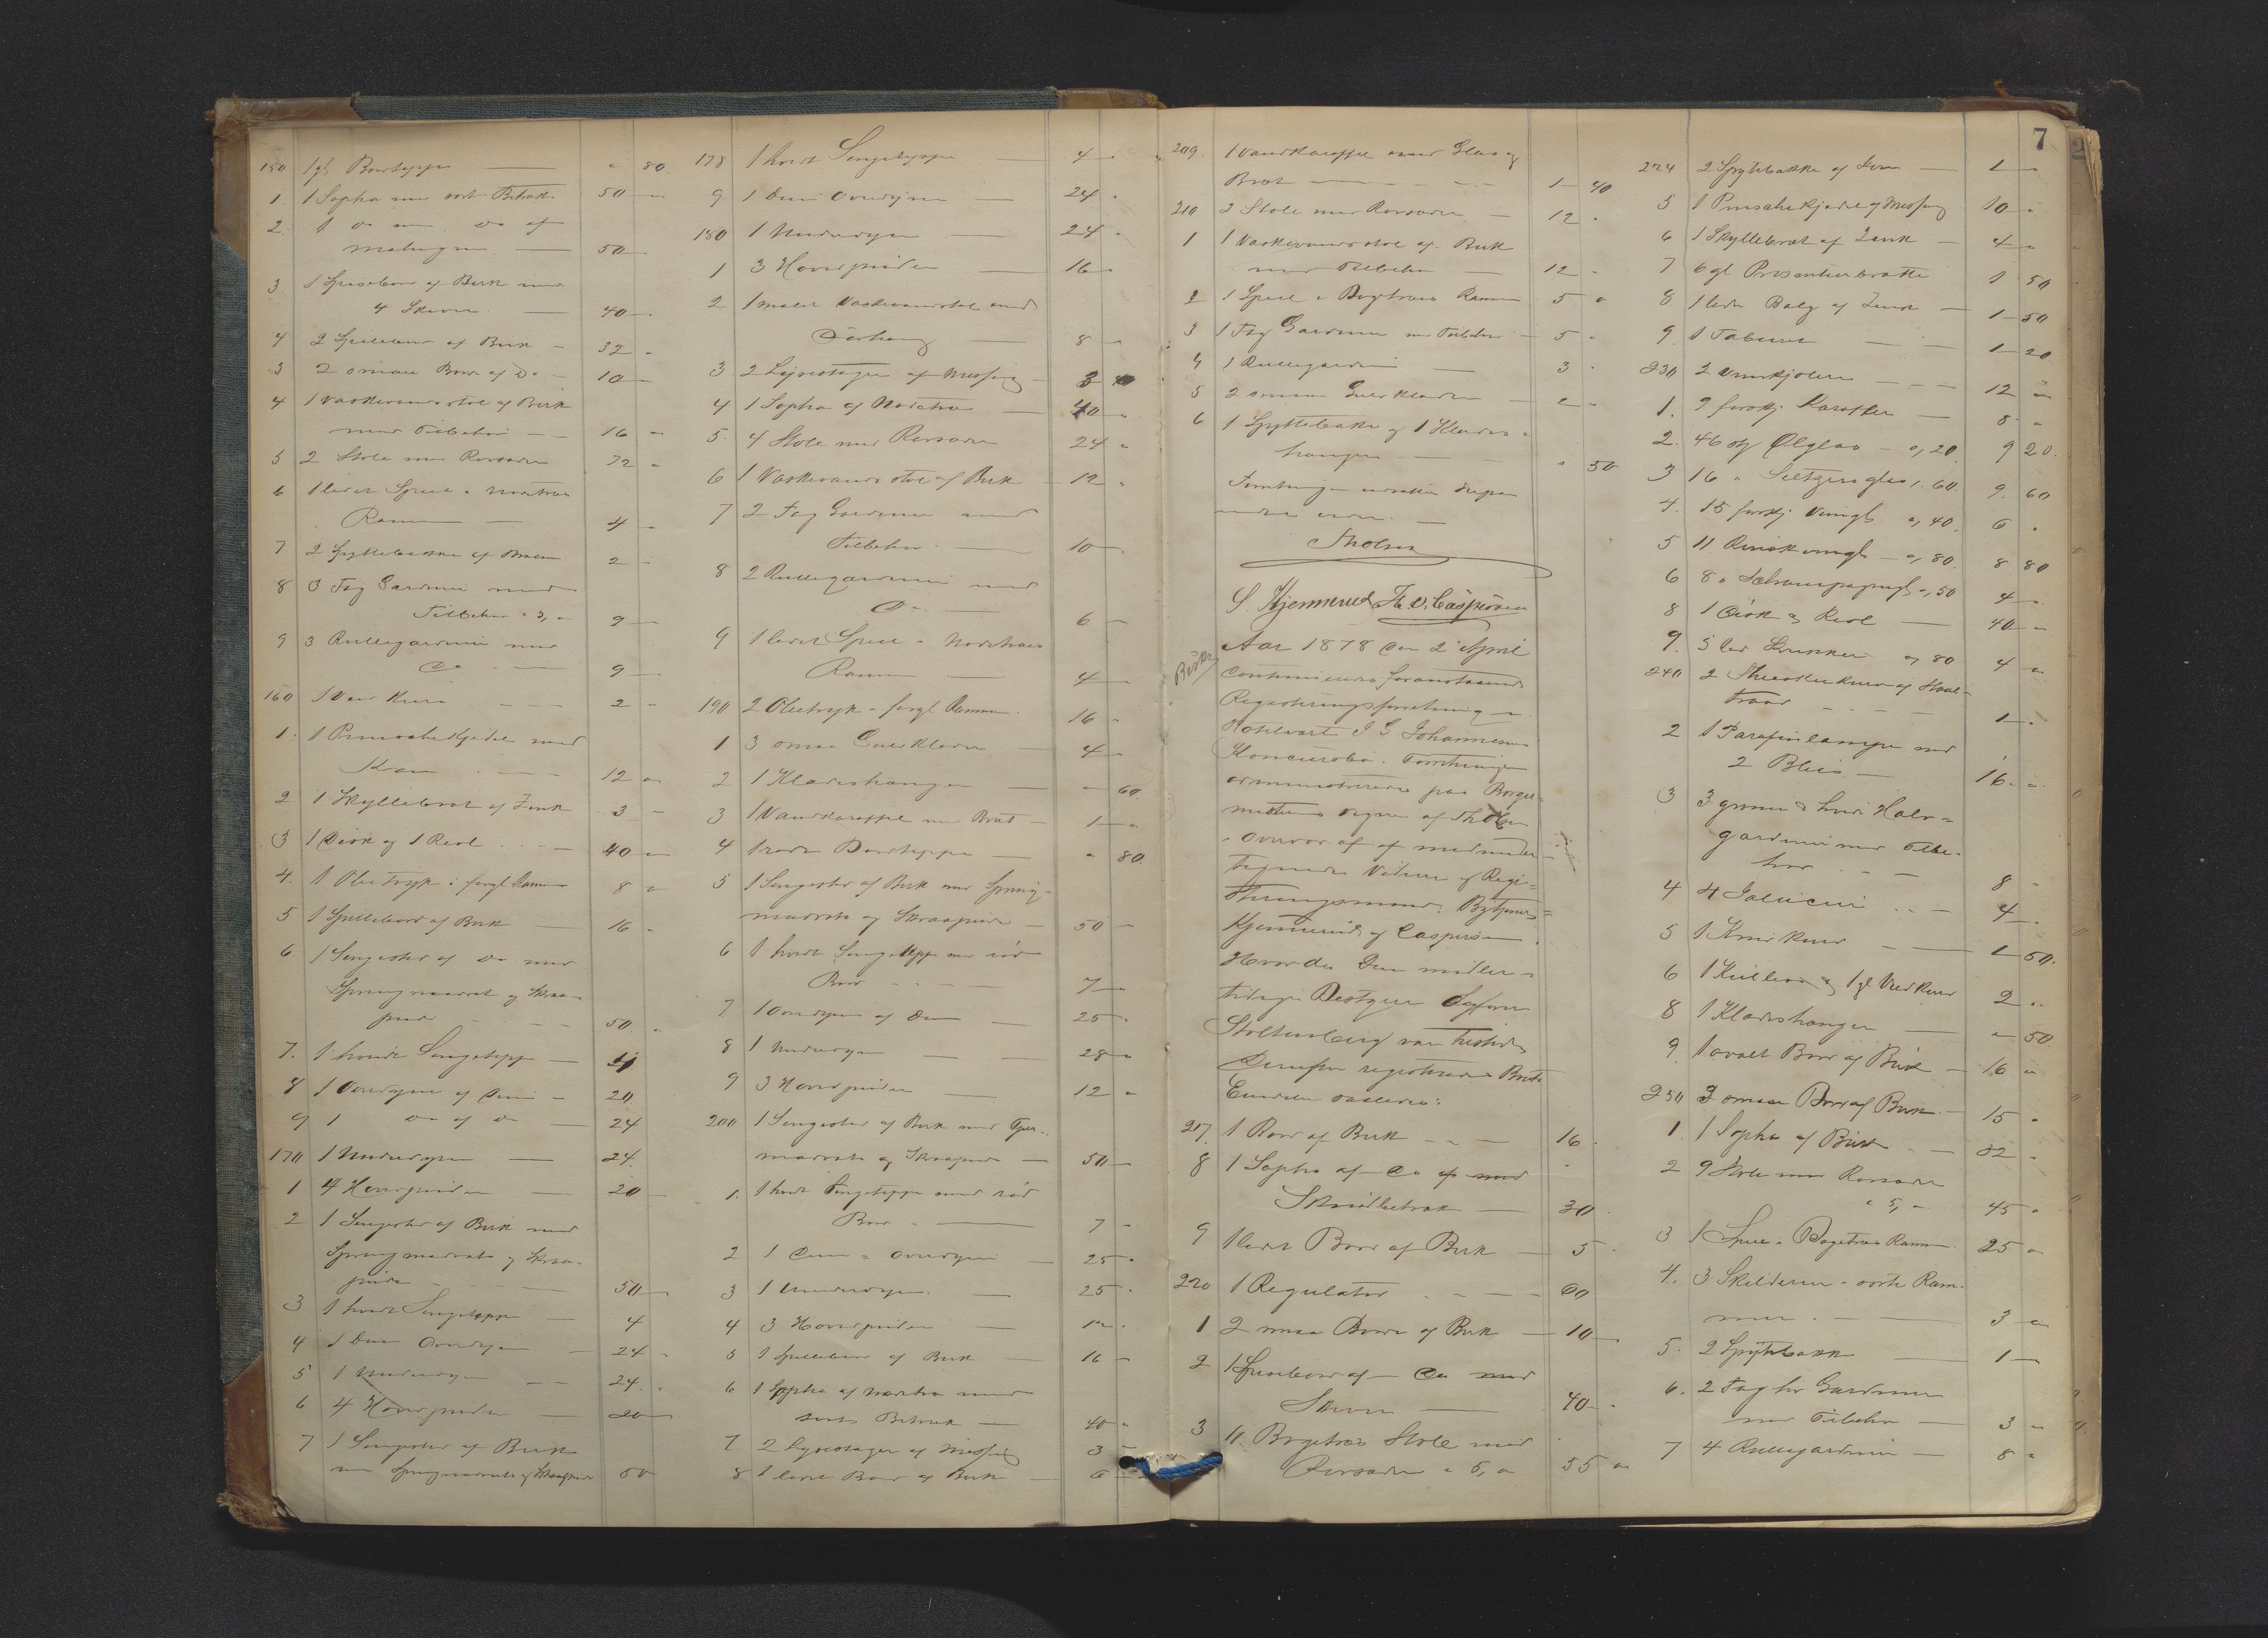 150 1 gl Bordteppe — " 80
1. 1 Sopha med sort Betræk 50 —
2 1 Do med Do af
mahogni — 50 —
3 1 Spisebord af Birk med
4 Skiver — 40 —
4 2 Spillebord af Birk — 32 -
3 2 smaa Bord af Do — 10 —
4 1 Vaskevandsstol af Birk
med Tilbehør — 16 —
5 2 Stole med Rorsæder 72 "
6 1 lidet Speil i Nøddetræs
Ramme — 4 —
7 2 Spyttebakker af 2 -
8 3 Fag Gardiner med
Tilbehør a 3, " 9 —
9 3 Rullegardiner med
Do — 9 —
160 1 Ved Kurv - - - 2 -
1. 1 Punschekjedel med
Kran - - - 12 "
2 1 Skyllebræt af Zink 3 —
3 1 Disk og 1 Reol - - - 40 "
4. 1 Olietryk i forgl Ramme 8 "
5 1 Spillebord af Birk — 16 -
6 1 Sengested af Do med
Springmadrats og Skraa-
pude - - - 50 "
7. 1 hvidt Sengeteppe — 4
8 1 Overdyne af Duun — 20
9 1 Do af Do — 24
170 1 Underdyne — 24.
1 4 Hovedpuder — 20 —
2 1 Sengested af Birk med
Springmadrats og Skraa-
pude - - - 50 —
3 1 hvidt Sengeteppe — 4
4 1 Duun Overdyne — 24 -
5 1 Underdyne - - 24 .
6 4 Hovedpuder — 20 —
7 1 Sengested af Birk
med Springmadrats og Skraapude 50
178 1 hvidt Sengeteppe — 4 —
9 1 Duun Overdyne — 24 "
180 1 Underdyne — 24 "
1 3 Hovedpuder — 16 —
2 1 malet Vaskevandsstol med
Forhæng — 8 —
3 2 Lysestager af Messing — 3
4 1 Sopha af Nøddetræ — 40 "
5. 4 Stole med Rorsæder 24 "
6 1 Vaskevandsstol af Birk — 12 "
7 2 Fag Gardiner med
Tilbehør — 10 —
8 2 Rullegardiner med
Do — 6 —
9 1 lidet Speil i Nøddetræs
Ramme — 4 —
190 2 Olietryk i forgl Ramme 16 -
1 3 smaa Gulvklæder — 4 —
2 1 Klædeshænger — " 60
3 1 Vandkaraffel med Bræt — 1 — "
4 1 rødt Bordteppe — " 80
5 1 Sengested af Birk med Spring-
madrats og Skraapude — 50 —
6 1 hvidt Sengeteppe med rød
Bord - - - 7 —
7 1 Overdyne af Duun — 25 "
8 1 Underdyne — 28 "
9 3 Hovedpuder — 12 "
200 1 Sengested af Birk med Fjær-
madrats og Skraapude — 50 —
1. 1 hvidt Sengeteppe med rød
Bord — 7 -
2 1 Duun - Overdyne — 25 "
3 1 Underdyne — 25 "
4 3 Hovedpuder — 12 "
5 1 Spillebord af Birk — 16 —
6 1 Sopha af Nøddetræ med
sort Betræk — 40 "
7 2 Lysestager af Messing 3 —
8 1 lidet Bord af Birk — 6 —
209. 1 Vandkaraffel med Glas og
Bræt — 1 40
210 2 Stole med Rorsæder — 12 "
1 1 Vaskevandsstol af Birk
med Tilbehør — 12 -
2 1 Speil i Bøgetræs Ramme 5 "
3 1 Fag Gardiner med Tilbehør — 5 "
4 1 Rullegardin — 3 "
5 2 smaa Gulvklæder —
6 1 Spyttebakke og 1 Klædes-
hænger — " 50
Forretningen
S. Kjemmerud Th. O. Caspersen
Aar 1878 den 2 April
continueredes foranstaaende
Registreringsforretning i
Hotelvært J G Johannesens
Konkursbo. Forretningen
administreredes paa Borger-
mesterens Vegne af
i Overvær af medunder-
tegnede Vidner og Regi-
streringsmænd: Bytjener
Kjemmerud og Caspersen.
Hvorda Den midler-
tidige Bestyrer Sagfører
Stoltenberg var tilstede
Derefter registreredes Boets
Eiendele saaledes:
217. 1 Bord af Birk - - - 16 "
8 1 Sopha af Do med
Skindbetræk — 30 "
9 1 lidet Bord af Birk — 5 "
220 1 Regulator - - - 60
1 2 smaa Borde af Birk — 10 —
2 1 Spisebord af Do med
Skiver — 40 —
3 11 Bøgetræs Stole med
Rorsæder a 5, " 55 "
7
224 2 Spyttebakker af Jern — 1 —
5 1 Punschekjedel af Messing 10 "
6 1 Skyllebræt af Zink — 4 "
7 6 gl Presenteerbrætte 1 50
8 1 liden Balg af Zink — 1 50
9. 1 Taburet — 1 20
230 2 Vinkjølere - - - 12 "
1. 9 forskj. Karafler — 8 "
2. 46 stk Ølglas — a, 20 9 20
3 16 " Seltzersglas a, 60 9. 60
4. 15 forskj. Vinugl a, 40. 6 "
5 11 Rinskvingl — a, 80. 8 80
6 8 " Schampagnegl a, 50 4 —
8 1 Disk og Reol — 40 "
9. 5 a, 80 4 "
240 2 af Staal-
traad - - - 1 -
2 1 Parafinlampe med
2 — 16 "
3 3 grønne & hvide Halv-
gardiner med Tilbe-
hør - - - 8 -
4 4 Jalusier - - - 4 —
5 1 Knivkurv — 1 50.
6 1 og 1 gl Vedkurv 2 "
8 1 Klædeshænger — " 50
9. 1 ovalt Bord af Birk — 16 "
250 3 smaa Bord af Birk — 15 "
1. 1 Sopha af Birk — 32 -
2 9 Stole med Rorsæder
a 5, " 45 "
3 1 Speil i Bøgetræs Ramme 25 "
4. 3 Skilderier i sorte Ram-
mer — 3 "
5. 2 Spyttebakker — 1 —
6. 2 Fag hv Gardiner
med Tilbehør — 3 "
7 4 Rullegardiner — 8 "